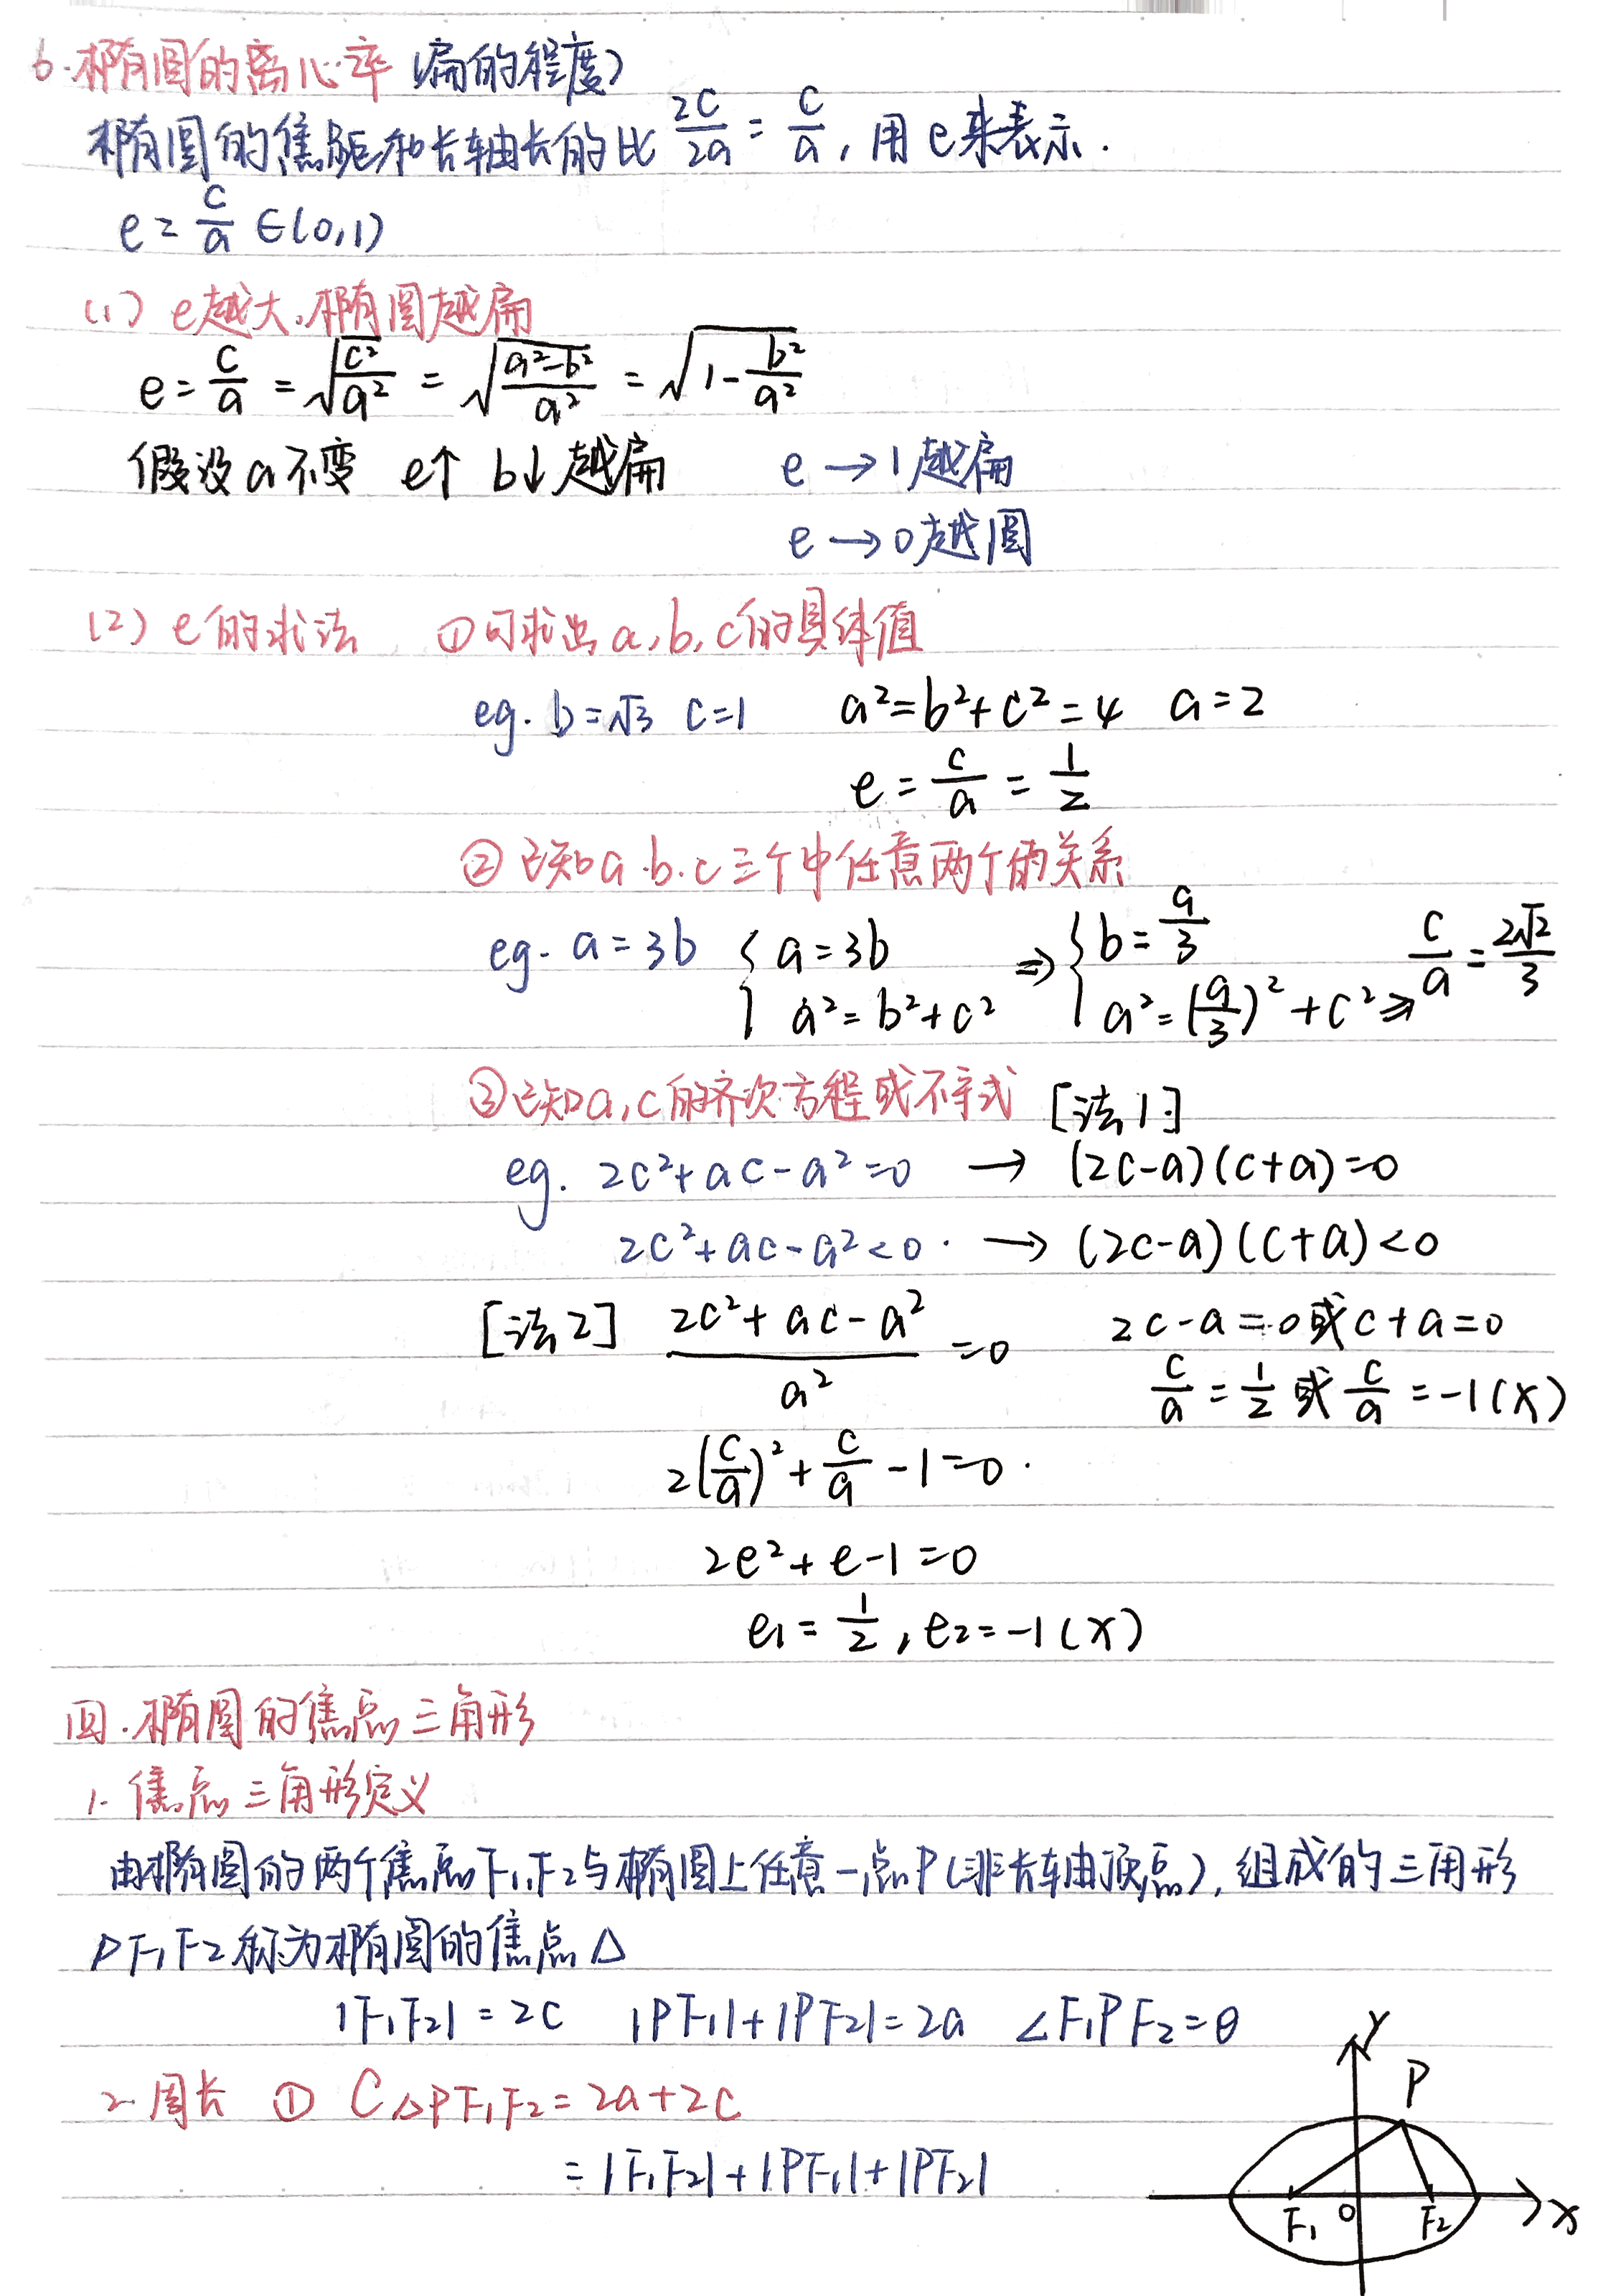 6. 椭圆的离心率 (扁的程度)
椭圆的焦距和长轴长的比 2c/2a = c/a, 用e来表示.
e = c/a ∈(0,1)
(1) e越大,椭圆越扁
e = c/a = √(c²/a²) = √((a²-b²)/a²) = √(1-b²/a²)
假设a不变 e↑ b↓越扁 e→1越扁
e→0越圆
(2) e的求法 ①可求出a,b,c的具体值
eg. b=√3 c=1 a²=b²+c²=4 a=2
e = c/a = 1/2
②已知a.b.c三个中任意两个的关系
eg. a=3b { a=3b a²=b²+c² ⇒ { b=a/3 a²=(a/3)²+c² ⇒ c/a = 2√2/3
③已知a,c的齐次方程或不等式 [法1]
eg. 2c²+ac-a²=0 → (2c-a)(c+a)=0
2c²+ac-a²<0. → (2c-a)(c+a)<0
[法2] (2c²+ac-a²)/a² =0 2c-a=0或c+a=0
c/a = 1/2 或 c/a = -1(×)
2(c/a)²+c/a-1=0.
2e²+e-1=0
e1=1/2, e2=-1(×)
四.椭圆的焦点三角形
1. 焦点三角形定义
由椭圆的两个焦点F1,F2与椭圆上任意一点P(非长轴顶点),组成的三角形
PF1F2称为椭圆的焦点△
|F1F2|=2c |PF1|+|PF2|=2a ∠F1PF2=θ
2. 周长 ① C△PF1F2=2a+2c
=|F1F2|+|PF1|+|PF2|
y
P
F1 O F2 x